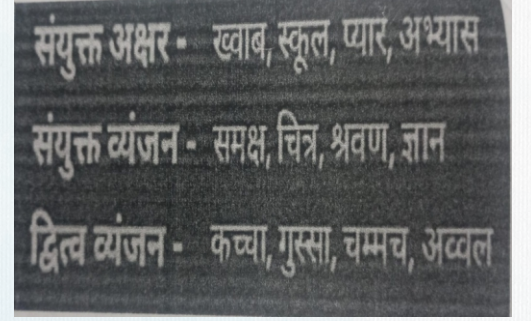 संयुक्त अक्षर - ख्वाब, स्कूल, प्यार, अभ्यास
संयुक्त व्यंजन - समक्ष, चित्र, श्रवण, ज्ञान
द्वित्व व्यंजन - कच्चा, गुस्सा, चम्मच, अव्वल